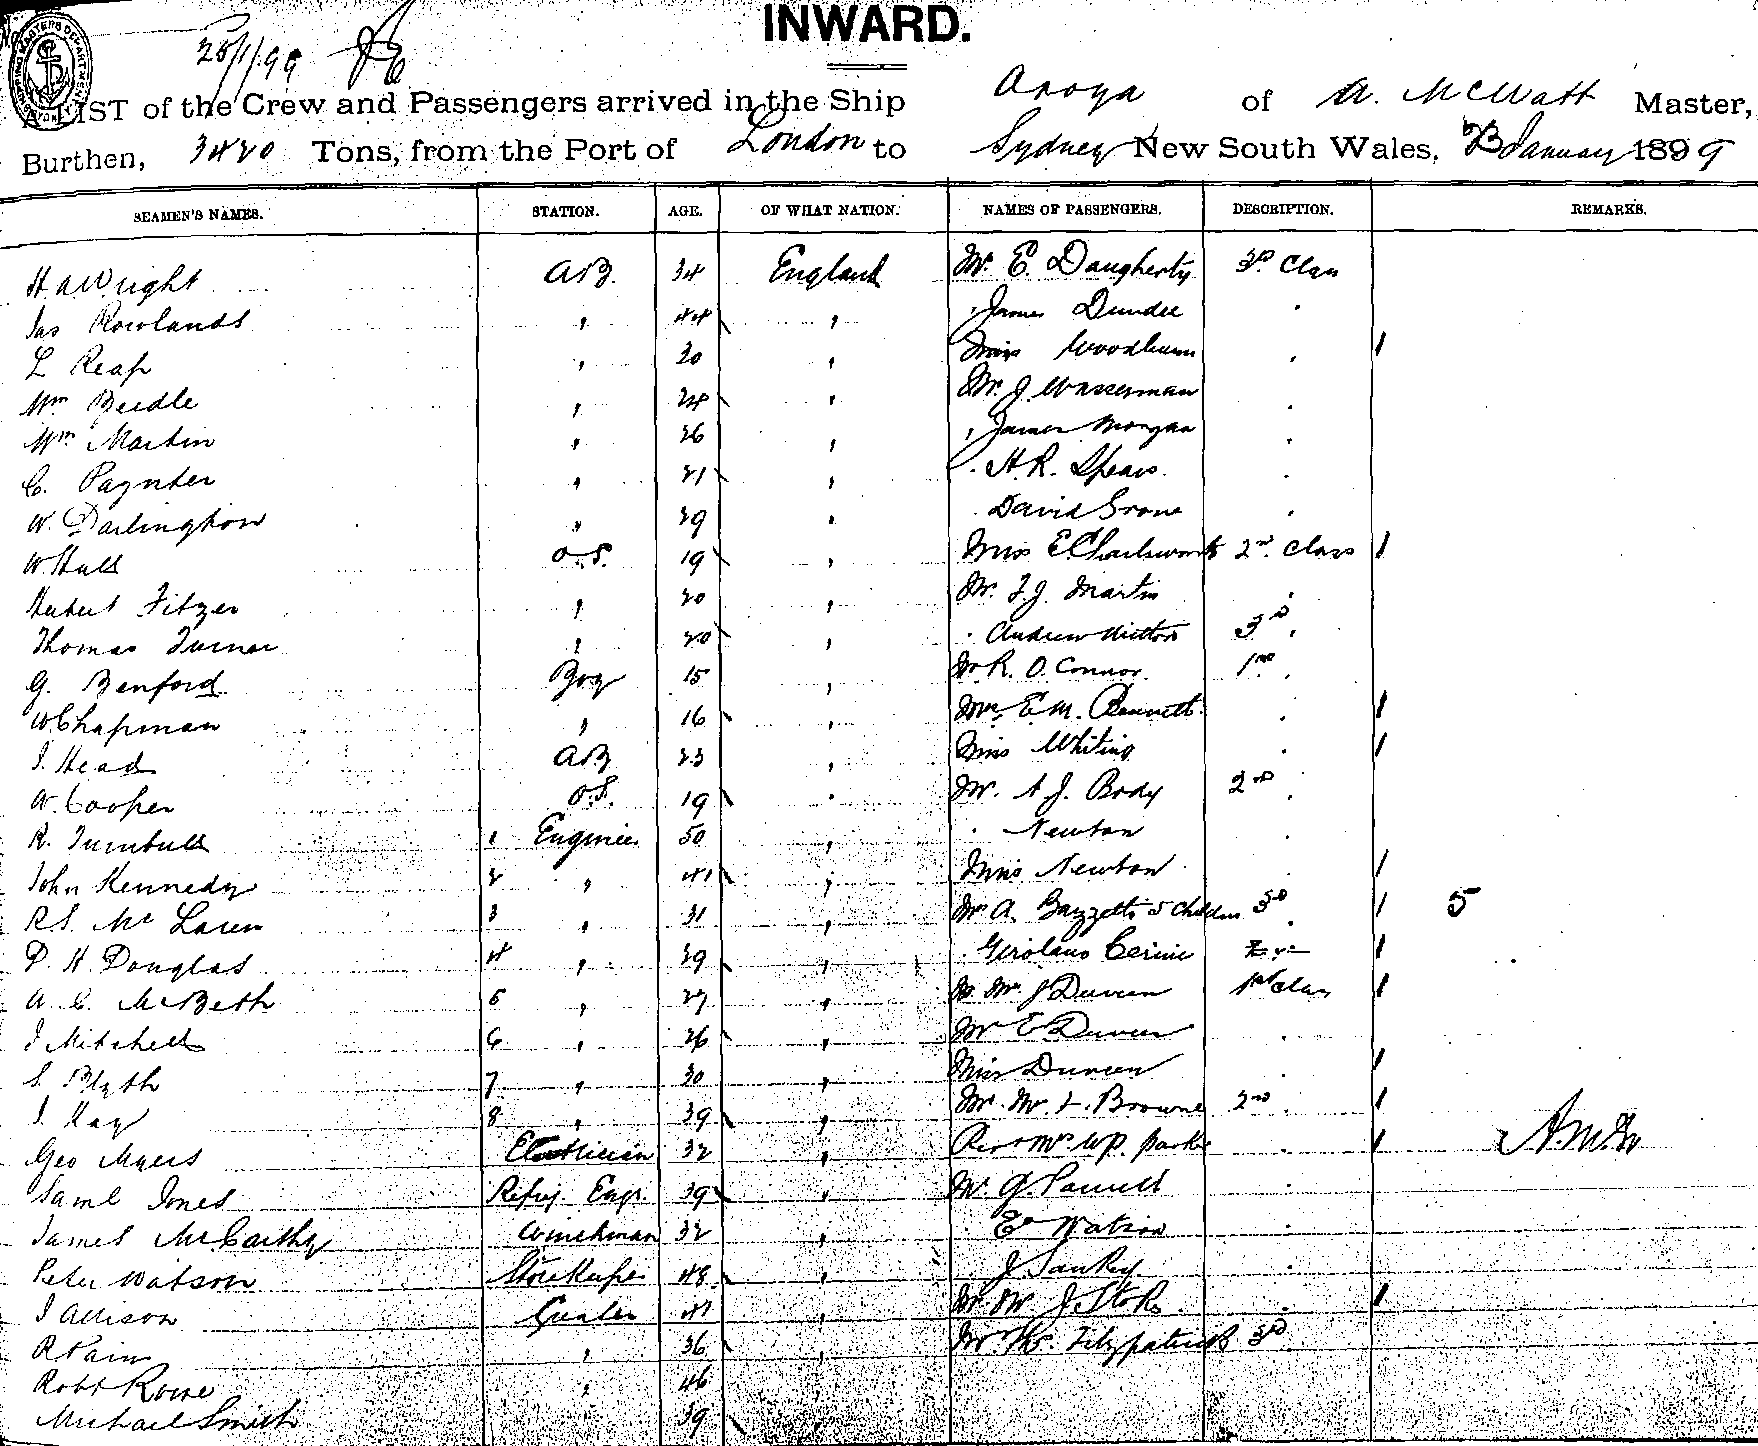 INWARD.
28/1/99
LIST of the Crew and Passengers arrived in the Ship Aroya of A. McWatt Master,
Burthen, 3420 Tons, from the Port of London to Sydney New South Wales, January 1899
SEAMEN'S NAMES. STATION. AGE. OF WHAT NATION. NAMES OF PASSENGERS. DESCRIPTION. REMARKS.
H. A Wright A.B. 34 England Mr. E. Daugherty 3rd Class
Jas Rowlands " 44 " " James Dundee "
L Reap " 30 " Miss "
Wm Beedle " 24 " Mr. J. Wasserman "
Wm Martin " 26 " " James Morgan "
C. Paynter " 21 " " H. R. Spears "
W. Darlington " 29 " David Grove "
W. Hull O.S. 19 " Miss E. Charlsworth 2nd Class
Hubert Fitzer " 20 " Mr. F. J. Martin "
Thomas Turner " 20 " " Andrew 3rd "
G. Benford Boy 15 " Mr R. O. Connor 1st "
W. Chapman " 16 " Mrs. E. M. Bennett "
J. Head A.B. 23 " Miss Whiting "
W. Cooper O.S. 19 " Mr. A J. Body 2nd "
R. Turnbull 1 Engineer 50 " " Newton "
John Kennedy 2 " 41 " Miss Newton "
R. S. Mc Laren 3 " 31 " Mr A. Bazzetti 5 Children 3rd " 5
D. H. Douglas 4 " 29 " " Girolamo Cerini
A. C. McBeth 5 " 27 " Mr. Mrs J Duveen 1st Class
J Mitchell 6 " 26 " Mr E Duveen "
S. Blyth 7 " 30 " Miss Duveen "
J. Kay 8 " 39 " Mr. Mrs L. Browne 2nd "
Geo Myers Electrician 32 " Rev & Mrs W. P. Parker "
Saml Jones Refrig. Engr. 39 " Mr. G. "
James McCarthy Winchman 32 " " Watson "
Peter Watson Storekeeper 48 " J Sankey "
J Allison Greaser 41 " Mr. Mrs J. Stokes "
R Pain " 36 " Mr Fitzpatrick 3rd
Robt Rowe " 46
Michael Smith 39 "